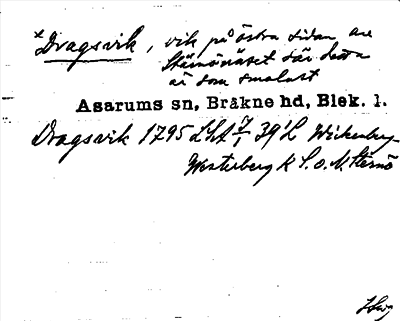 *Dragsvik, vik på östra sidan av
Stärnönäset där detta
är som smalast
Asarums sn, Bräkne hd, Blek. l.
Dragsvik 1795 LA 7/1 39 1/2 Wickenberg
Westerberg k S. o. N. Sternö